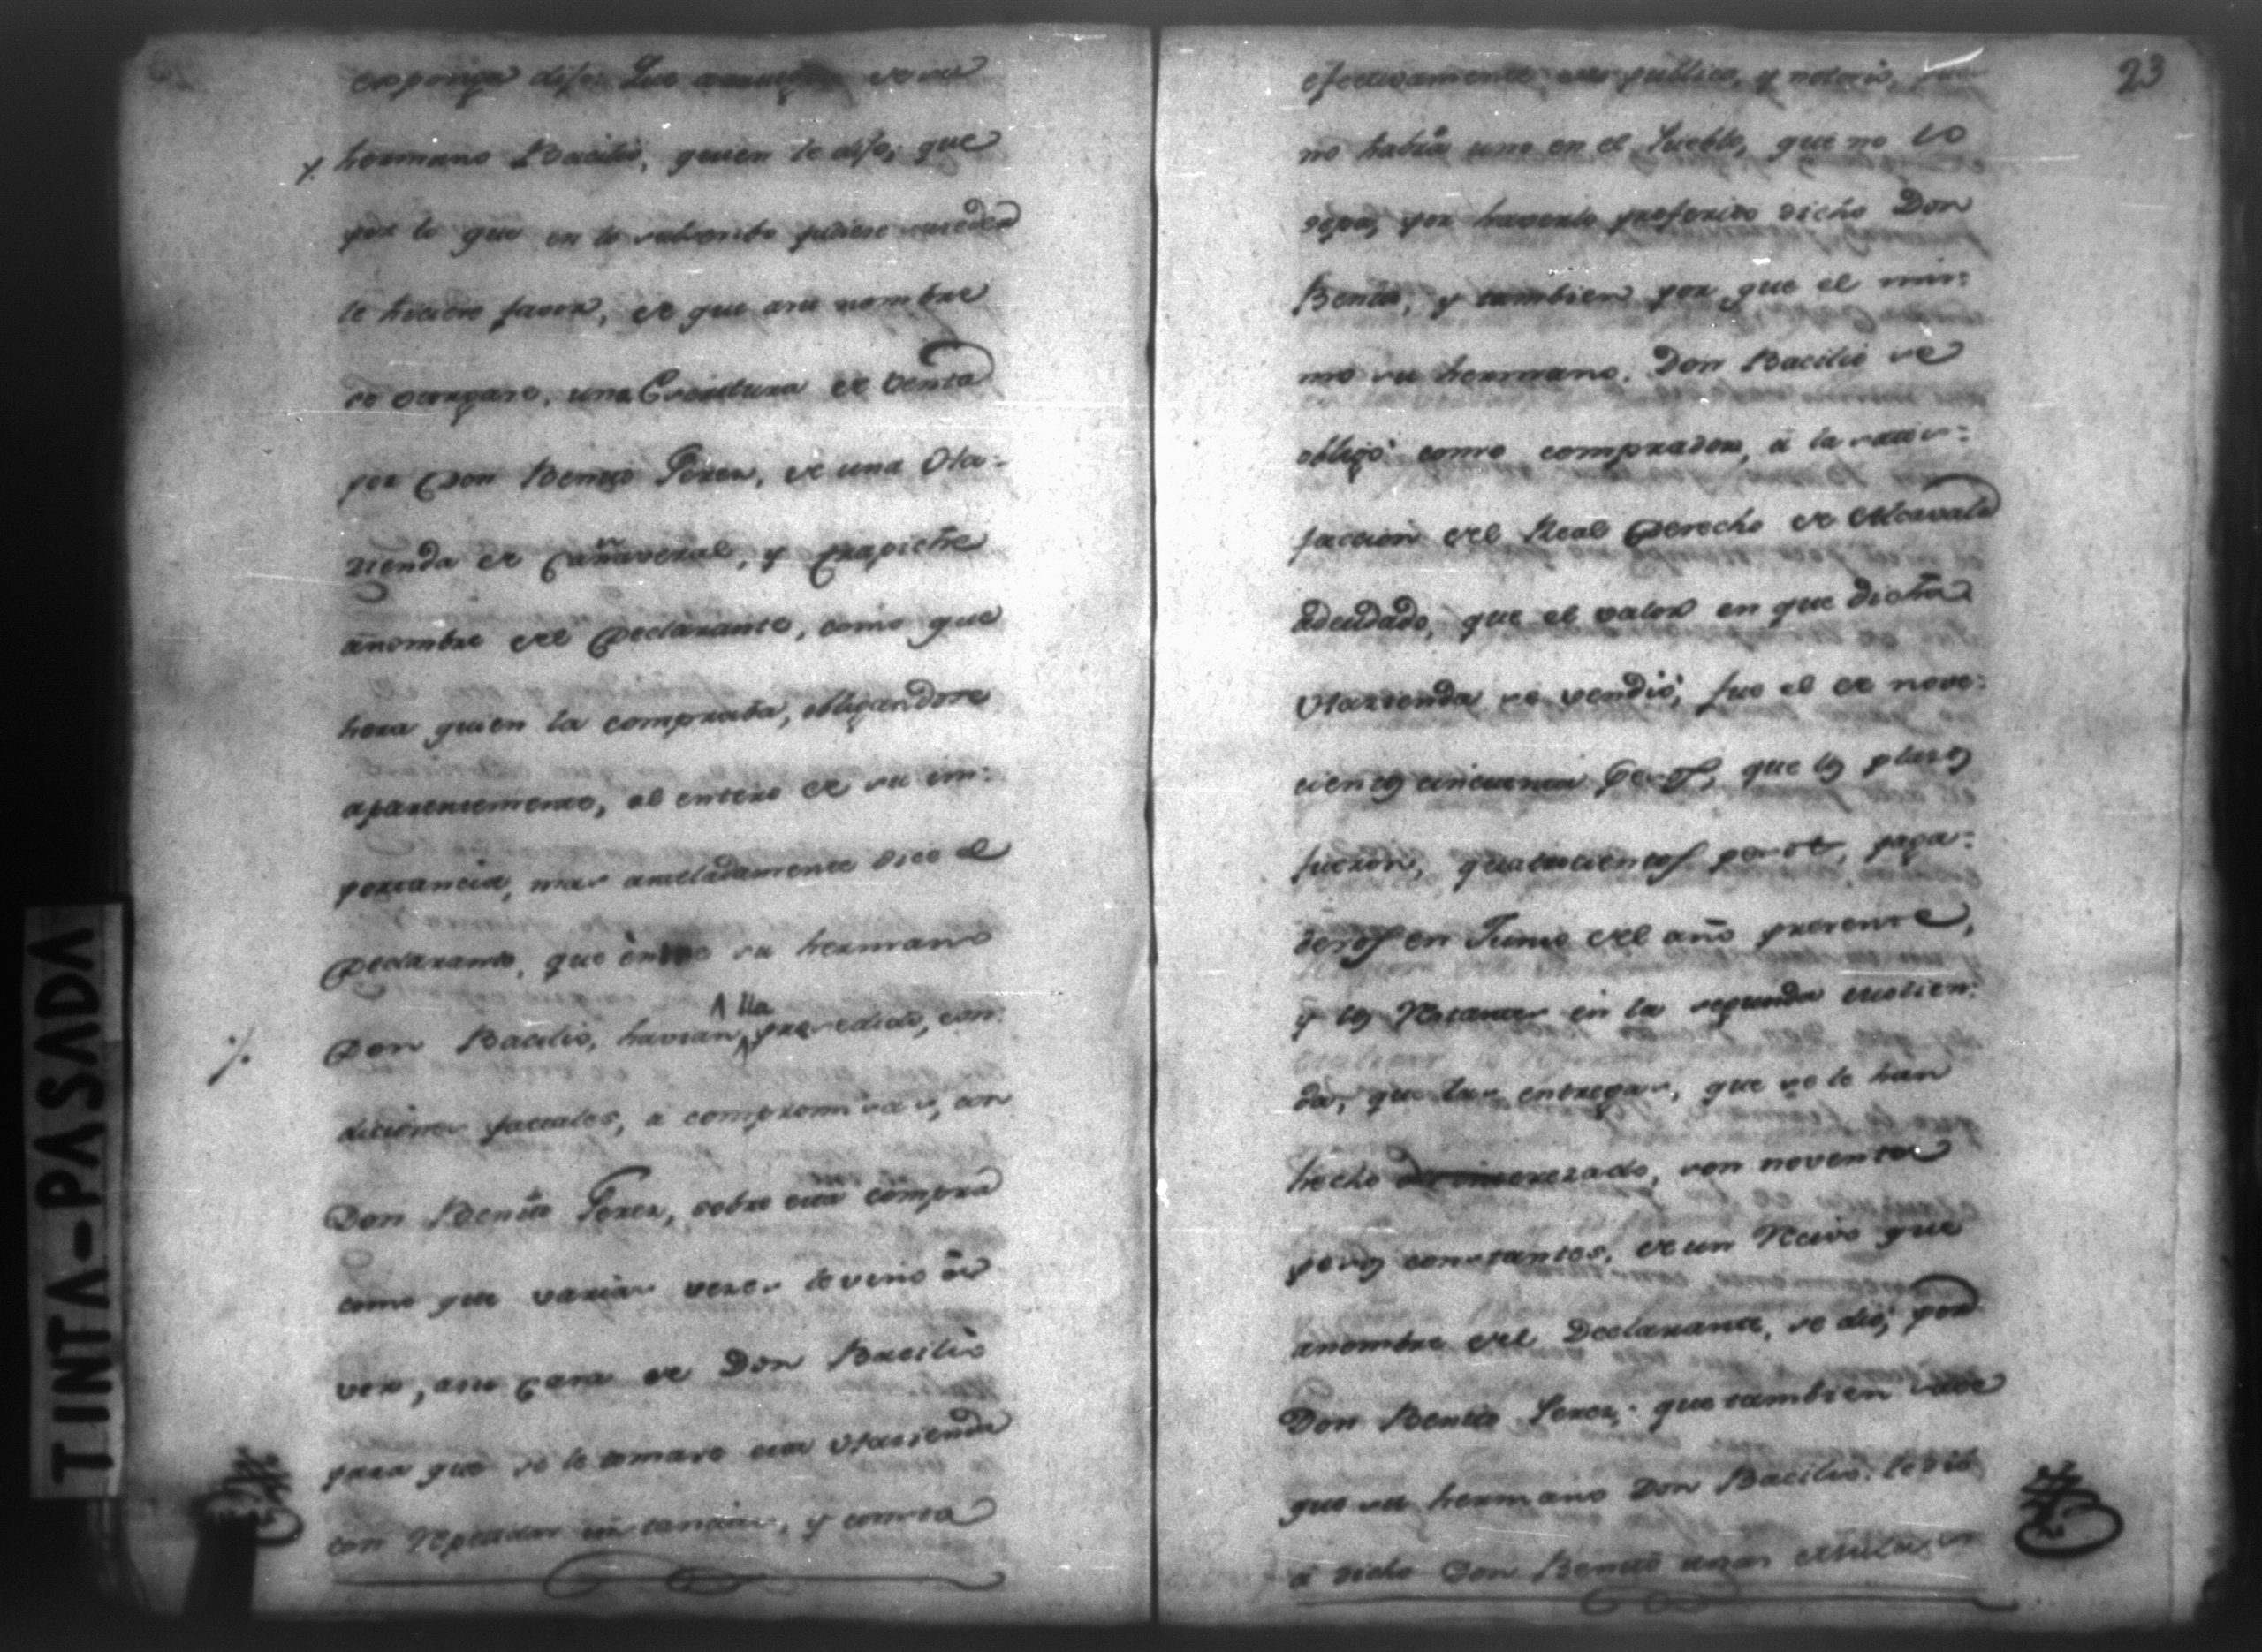 exponga dijo: Que de su
hermano Bacilio, quien le dijo, que
por lo que en lo subcesibo pudiere suceder
le hiciere favor, de que asu nombre
se otorgare, una Escritura de Venta
por Don Benito Perez, de una Ha-
zienda de Cañaveral, y Trapiche
anombre del Declarante, como que
hera quien la compraba, obligandose
aparentemente, al entero de su im:
portancia, mas aseladamente dice el
Declarante, que entre su hermano
Alla
Don Bacilio, havian precedido, con:
diciones pactales, a compromisas, con
Don Benito Perez, sobre esta compra
como que varias vezes le vino â
ver, asu Casa de Don Bacilio
para que se le tomase esta Hazienda
con Repetidas instancias, y consta
23
efectivamente ser publico, y notorio, pues
no habrá uno en el Pueblo, que no lo
sepa, por haverlo proferido dicho Don
Benito, y tambien por que el mis:
mo su hermano, Don Bacilio se
obligó como comprador, á la satis:
faccion del Real Derecho de Alcavala
adeudado, que el valor en que dicha
Hazienda se vendió, fue el de nove:
cientos cincuenta Pesos, que los plazos
fueron, quatrocientos pesos, paga:
deros en Junio del año presente,
y los Restantes en la segunda molien:
da, que las entregas, que se le han
hecho son noventa
pesos constantes, de un Recivo que
anombre del Declarante, se dió, por
Don Benito Perez, que tambien save
que su hermano Don Bacilio, le dió
á dicho Don Benito unas Mulas, en
TINTA-PASADA